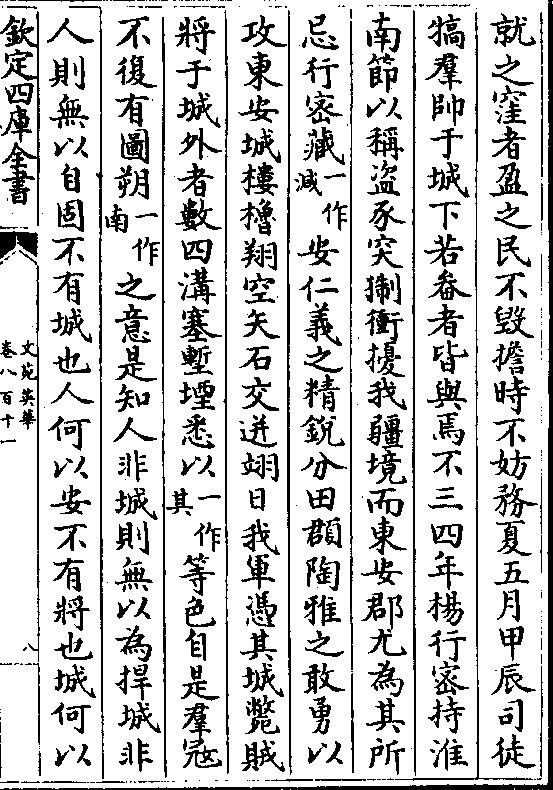 就之窪者盈之民不毀擔時不妨務夏五月甲辰司徒
犒羣帥于城下若畚者皆與焉不三四年楊行密持淮
南節以稱盜豕突猘衝擾我疆境而東安郡尤為其所
忌行密藏一作減安仁義之精銳分田頵陶雅之敢勇以
攻東安城樓櫓翔空矢石交迸翊日我軍憑其城斃賊
將于城外者數四溝塞塹堙悉以一作其等色自是羣冦
不復有圖朔一作南之意是知人非城則無以為捍城非
人則無以自固不有城也人何以安不有將也城何以
欽定四庫全書
文苑英華
卷八百十一
八